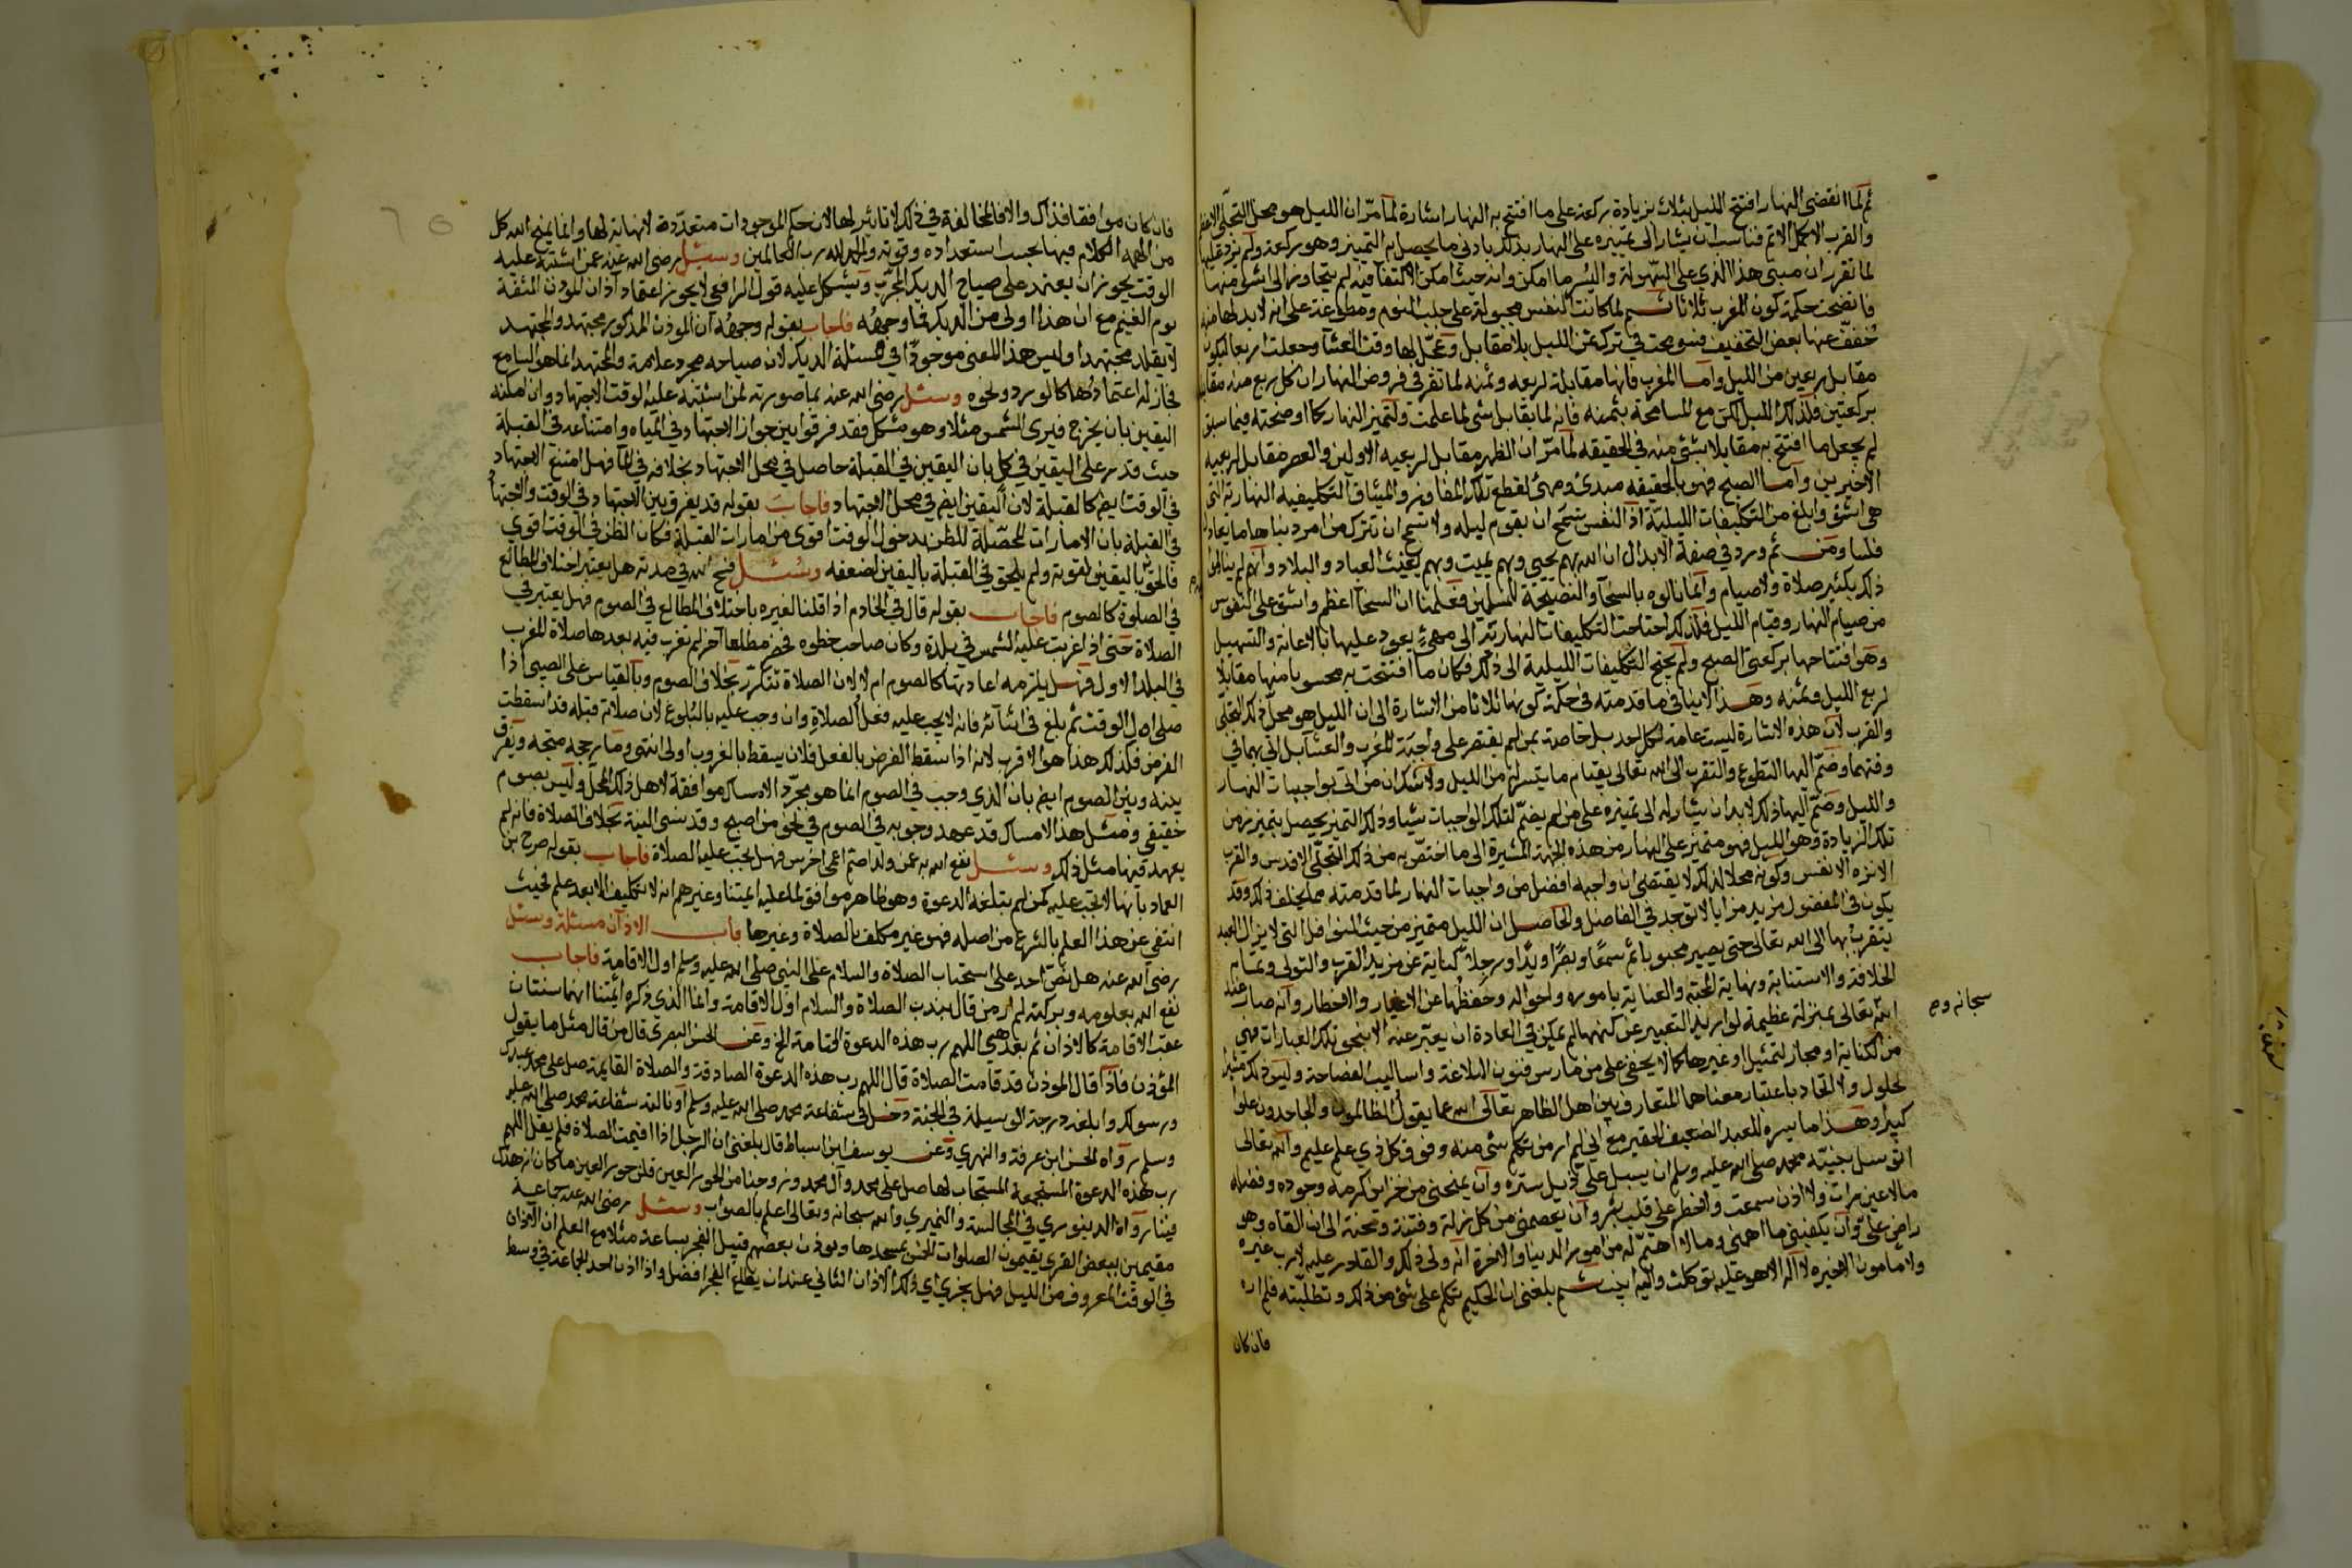 ثم لما انقضى النهار افتتح الليل بثلاث بزيادة ركعة على ما افتتح به النهار اشارة لما مر ان الليل هو محل التجلى الاعظم
والقرب الاكمل الاتم فناسب ان يشار الى تميزه على النهار بذلك بادنى ما يحصل به التميز وهو ركعة ولم يزد عليها
لما تقرر ان مبنى هذا الذي على السهولة واليسر ما امكن وانه حيث امكن الاكتفا فيه لم يتجاوز الى اشق منها
فاتضحت حكمة كون المغرب ثلاثا ثم لما كانت النفس مجبولة على جلب النوم ومطبوعة على انه لا بد لها منه
خفف عنها بعض التخفيف فسومحت في ترك ثمن الليل بلا مقابل وعجل لها وقت العشا وجعلت اربعا لتكون
مقابل ربعين من الليل واما المغرب فانها مقابلة لربعه وثمنه لما تقرر في فروض النهار ان كل ربع منه مقابل
بركعتين فكذلك الليل لكن مع المسامحة بثمنه فانه لما يقابل بشى لما علمت ولتميز النهار كما اوضحته فيما سبق
لم يجعل ما افتتح به مقابلا بشئ منه في الحقيقة لما مر ان الظهر مقابل لربعيه الاولين والعصر مقابل لربعيه
الاخيرين واما الصبح فهو بالحقيقة مبدئ ومهئ لقطع تلك المفاوز والميثاق التكليفيه النهارية التى
هى اشق وابلغ من التكليفات الليلية اذ النفس تسمح ان يقوم ليله ولا تسمح ان تترك من امر دنياها ما يعادل
فلسا ومن ثم ورد في صفة الابدال ان الله بهم يحيى وبهم يميت وبهم يغيث العباد والبلاد وانهم لم ينالوا
ذلك بكثير صلاة ولا صيام وانما نالوه بالسخا والنصيحة للمسلمين فعلمنا ان السخا اعظم واشق على النفوس
من صيام النهار وقيام الليل فلذلك احتاجت التكليفات النهارية الى مهئ يعود عليها بالاعانة والتسهيل
وهو افتتاحها بركعتى الصبح ولم يحتج التكليفات الليلية الى ذلك فكان ما افتتحت به محسوبا منها مقابلا
لربع الليل وثمنه وهذا لا ينافي ما قدمته في حكمة كونها ثلاثا من الاشارة الى ان الليل هو محل ذلك التجلى
والقرب لان هذه الاشارة ليست عامة لكل احد بل خاصة بمن لم يقتصر على واجبة المغرب والعشا بل اتى بهما في
وقتهما وضم اليها التطوع والتقرب الى الله تعالى بقيام ما يتيسر له من الليل ولا شك ان من اتى بواجبات النهار
والليل وضم اليها ذلك لا بد ان يشار له الى تميزه على من لم يضم لتلك الواجبات شيا وذلك التميز يحصل بتميز زمن
تلك الزيادة وهو الليل فهو متميز على النهار من هذه الجهة المشيرة الى ما اختص به من ذلك التجلى الاقدس والقرب
الانزه الانفس وكونه محلا لذلك لا يقتضى ان واجبه افضل من واجبات النهار لما قدمته مما يخلف ذلك وقد
يكون في المفضول مزيد مزايا لا توجد في الفاضل والحاصل ان الليل متميز من حيث النوافل التى لا يزال العبد
يتقرب بها الى الله تعالى حتى يصير محبوبا ثم سمعا وبصرا ويدا ورجلا كناية عن مزيد القرب والتولى وتمام
الخلافة والاستنابة ونهاية المحبة والعناية باموره واحواله وحفظها عن الاغيار والاخطار وانه صار عند
الله تعالى بمنزلة عظيمة لو اريد التعبير عن كنهها لم يمكن في العادة ان يعبر عنه الا بنحو تلك العبارات فهي
من الكناية او مجاز التمثيل او غيرها كما لا يخفى على من مارس فنون البلاغة واساليب الفصاحة وليس ذلك مثيرا
لحلول ولا اتحاد باعتبار معناهما المتعارف بين اهل الظاهر تعالى الله عما يقول الظالمون والجاحدون علوا
كبيرا وهذا ما يسره للعبد الضعيف الحقير مع انى لم ار من تكلم بشى منه وفوق كل ذي علم عليم والله تعالى
اتوسل بنبيه محمد صلى الله عليه وسلم ان يسبل علي ذيل ستره وان يمنحنى من خزاين كرمه وجوده وفضله
ما لا عين رات ولا اذن سمعت ولا خطر على قلب بشر وان يعصمنى من كل زلة وفتنة ومحنة الى ان القاه وهو
راض على وان يكفينى ما اهمنى وما لا اهتم له من امور الدنيا والاخرة انه ولى ذلك والقادر عليه لا رب غيره
ولا مامون الا خيره لا اله الا هو عليه توكلت واليه انيب ثم بلغنى ان الحكيم تكلم على شئ من ذلك وتطلبته فلم اره
سبحانه وصح
فان كان
فان كان موافقا فذاك والا فالمخالفة في ذلك لا تاثير لها لان حكم الموجودات متعددة لا نهاية لها وانما يمنح الله كل
من الهمه الكلام فيها بحسب استعداده وقوته والحمد لله رب العالمين وسئل رضى الله عنه عمن اشتبه عليه
الوقت يجوز ان يعتمد على صياح الديك المجرب ويشكل عليه قول الرافعى لا يجوز اعتماد اذان المؤذن الثقة
يوم الغيم مع ان هذا اولى من الديك فما وجهه فاجاب بقوله وجهه ان المؤذن المذكور مجتهد والمجتهد
لا يقلد مجتهدا وليس هذا المعنى موجودا في مسئلة الديك لان صياحه مجرد علامة والمجتهد انما هو السامع
فجاز له اعتمادها كالورد ونحوه وسئل رضى الله عنه بما صورته لمن اشتبه عليه الوقت الاجتهاد وان امكنه
اليقين بان يخرج فيرى الشمس مثلا وهو مشكل فقد فرقوا بين جواز الاجتهاد في المياه وامتناعه في القبلة
حيث قدر على اليقين في كل بان اليقين في القبلة حاصل في محل الاجتهاد بخلافه في الما فهل امتنع الاجتهاد
في الوقت ايض كالقبلة لان اليقين ايض في محل الاجتهاد فاجاب بقوله قد يفرق بين الاجتهاد في الوقت والاجتهاد
في القبلة بان الامارات المحصلة للظن بدخول الوقت اقوى من امارات القبلة فكان الظن في الوقت اقوى
فالحق باليقين لقوته ولم يلحق في القبلة باليقين لضعفه وسئل فسح الله في مدته هل يعتبر اختلاف المطالع
في الصلوة كالصوم فاجاب بقوله قال في الخادم اذا قلنا لغيره باختلاف المطالع في الصوم فهل يعتبر في
الصلاة حتى اذا غربت عليه الشمس في بلدة وكان صاحب خطوه فحضر مطلعا اخر لم تغرب فيه بعدها صلاة المغرب
في البلد الاول فهل يلزمه اعادتها كالصوم ام لا لان الصلاة تتكرر بخلاف الصوم وبالقياس على الصبى اذا
صلى اول الوقت ثم بلغ في اثنائه فانه لا يجب عليه فعل الصلاة وان وجب عليه بالبلوغ لان صلاته قبله قد اسقطت
الفرض فكذلك هذا هو الاقرب لانه اذا سقط الفرض بالفعل فلان يسقط بالغروب اولى انتهى وما رجحه متجه ويفرق
بينه وبين الصوم ايض بان الذي وجب في الصوم انما هو مجرد الامساك موافقة لاهل ذلك المحل وليس بصوم
حقيقى ومثل هذا الامساك قد عهد وجوبه في الصوم في نحو من اصبح وقد نسى النية بخلاف الصلاة فانه لم
يعهد فيها مثل ذلك وسئل نفع الله به عمن ولد اصم اعمى اخرس فهل يجب عليه الصلاة فاجاب بقوله صرح بن
العماد بانها لا تجب عليه كمن لم تبلغه الدعوة وهو ظاهر موافق لما عليه ايمتنا وغيرهم انه لا تكليف الا بعد علم فحيث
انتفى عن هذا العلم بالشرع من اصله فهو غير مكلف بالصلاة وغيرها باب الاذان مسئلة وسئل
رضى الله عنه هل نص احد على استحباب الصلاة والسلام على النبي صلى الله عليه وسلم اول الاقامة فاجاب
نفع الله بعلومه وبركته لم ار من قال بندب الصلاة والسلام اول الاقامة وانما الذي ذكره ايمتنا انهما سنتان
عقب الاقامة كالاذان ثم بعدهما اللهم رب هذه الدعوة التامة الخ وعن الحسن البصري قال من قال مثل ما يقول
المؤذن فاذا قال المؤذن قد قامت الصلاة قال اللهم رب هذه الدعوة الصادقة والصلاة القايمة صل على محمد عبدك
ورسولك وابلغه درجة الوسيلة في الجنة دخل في شفاعة محمد صلى الله عليه وسلم او نالته شفاعة محمد صلى الله عليه
وسلم رواه الحسن ابن عرفة والنمري وعن يوسف ابن اسباط قال بلغنى ان الرجل اذا اقيمت الصلاة فلم يقل اللهم
رب هذه الدعوة المستجمعة المستجاب لها صل على محمد وآل محمد وزوجنا من الحور العين قلن حور العين ما كان ازهدك
فينا رواه الدينوري في المجالسة والنميري والله سبحانه وتعالى اعلم بالصواب وسئل رضى الله عنه جماعة
مقيمين ببعض القرى يقيمون الصلوات الخمس بمسجدها ويوذن بعضهم قبيل الفجر بساعة مثلا مع العلم ان الاذان
في الوقت المعروف من الليل فهل يجزي اي ذلك الاذان الثاني عند ان يطلع الفجر افضل واذا اذن احد الجماعة في وسط